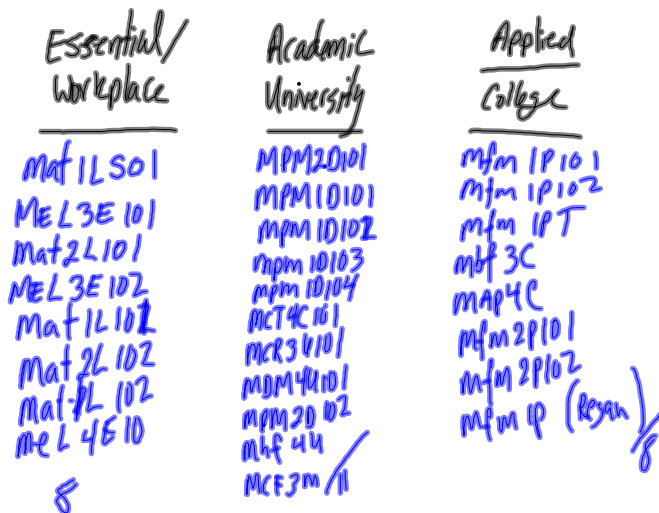 Essential/
Workplace
Mat1LS01
MEL3E101
Mat2L101
MEL3E102
Mat1L101
Mat2L102
MEL4E10
8
Academic
University
MPM2D101
MPM1D101
MPM1D102
mpm1D103
mpm1D104
MCT4C101
MCR3U101
MDM4U101
MPM2D102
Mhf4U
MCF3M /11
Applied
College
Mfm1P101
Mfm1P102
Mfm1PT
Mbf3C
MAP4C
Mfm2P101
Mfm2P102
Mfm1P (Regan)
/8